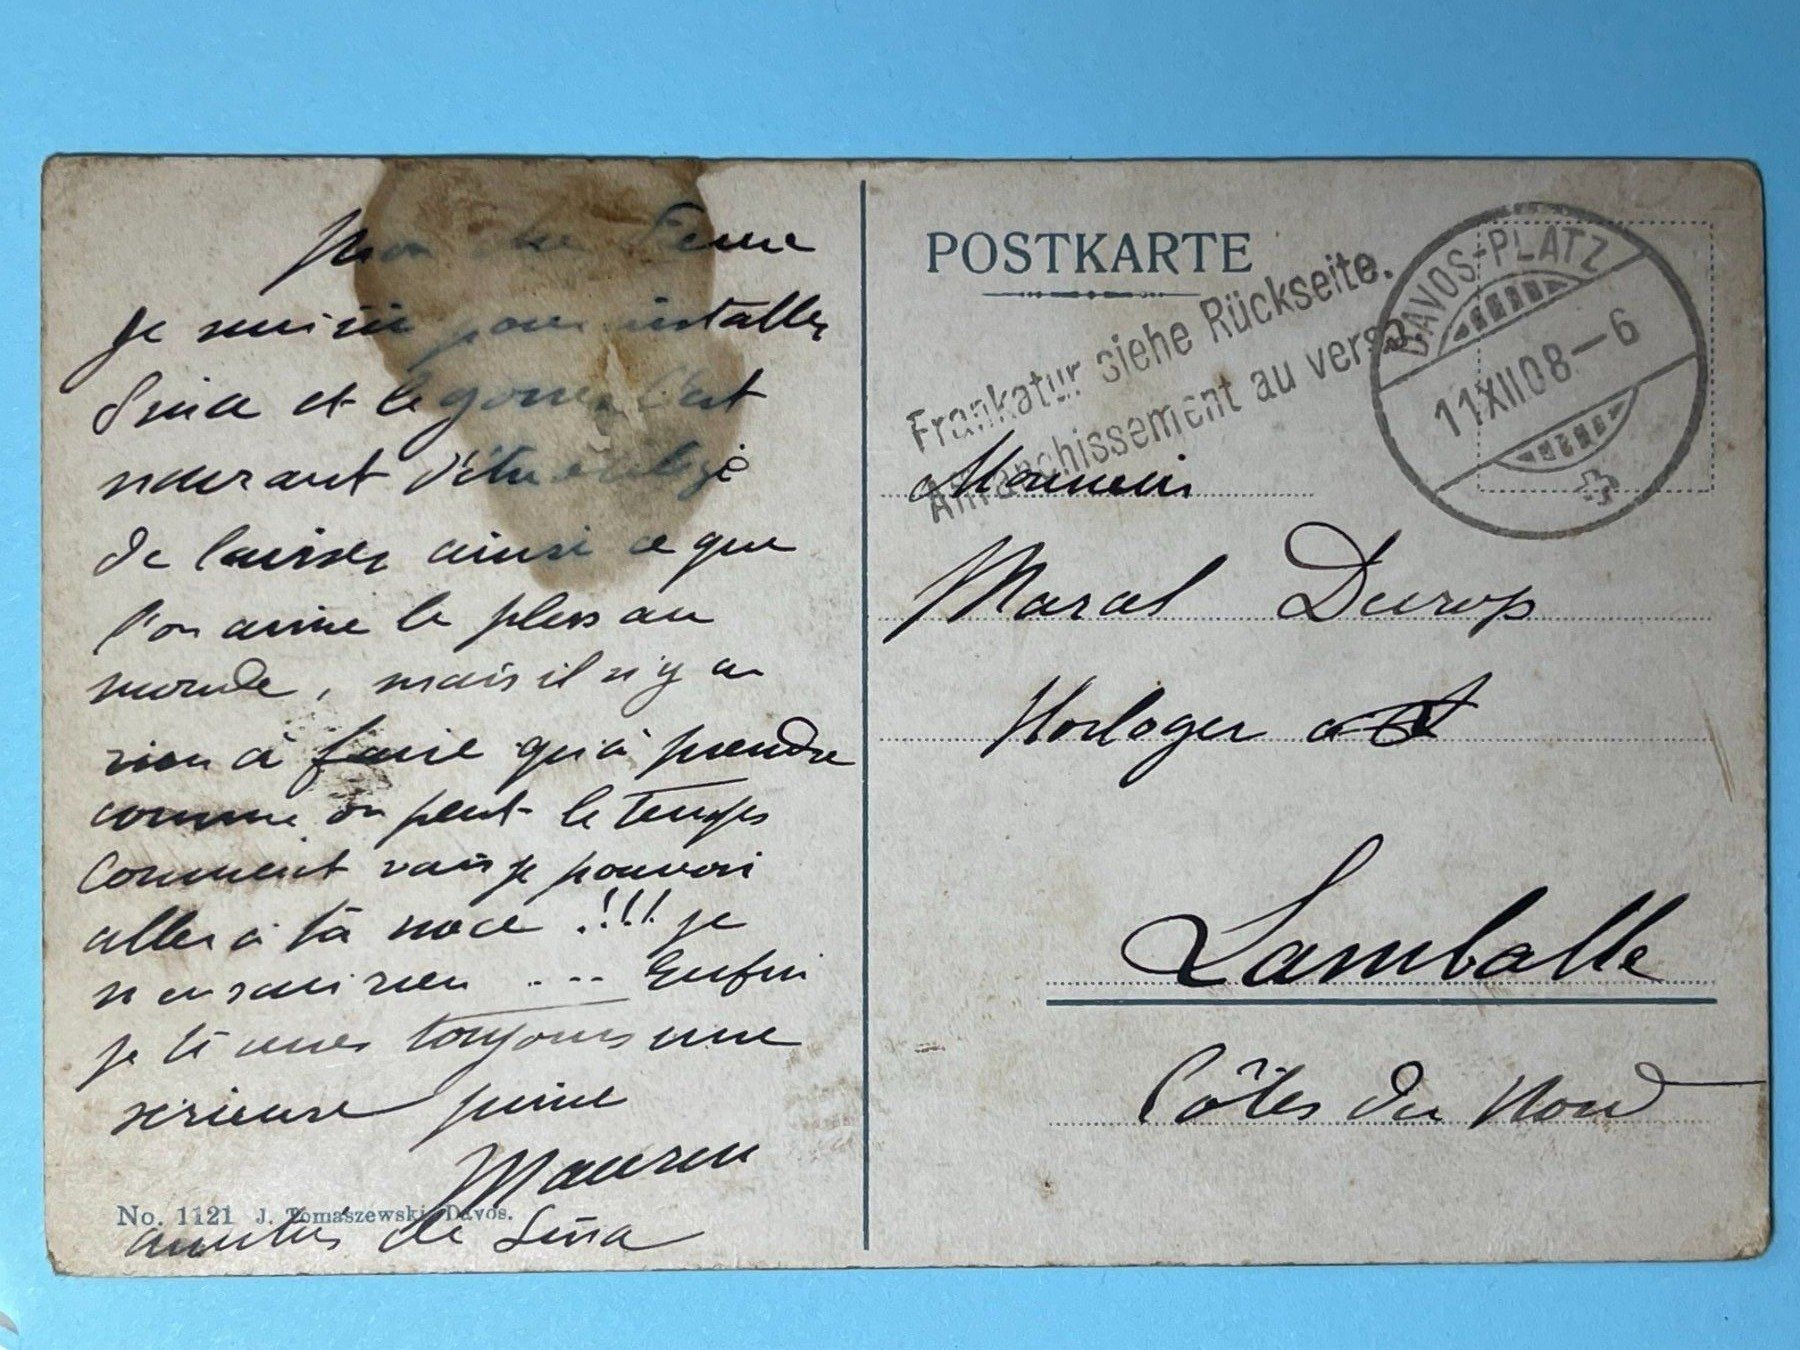 Mon cher
Je suis ici pour installer
Sina et le gosse. C'est
navrant d'être obligé
de laisser ainsi ce que
l'on aime le plus au
monde, mais il n'y a
rien à faire qu'à prendre
comme on peut le temps
Comment vais je pouvoir
aller à ta noce !!!! je
n'en sais rien .... Enfin
je t'
toujours une
sérieuse
amitiés de Sina
No. 1121 J. Tomaszewski, Davos.
POSTKARTE
Frankatur siehe Rückseite.
Affranchissement au verso.
DAVOS-PLATZ
11.XII.08-6
Monsieur
Marcel
Horloger
Lamballe
Côtes du Nord